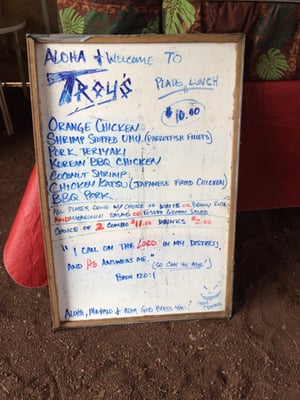 ALOHA & WELCOME TO
TROY'S
PLATE LUNCH
$10.00
ORANGE CHICKEN
SHRIMP STUFFED UHU (PARROTFISH FILLETS)
PORK TERIYAKI
KOREAN BBQ CHICKEN
COCONUT SHRIMP
CHICKEN KATSU (JAPANESE FRIED CHICKEN)
BBQ PORK
ALL PLATES COME W/ CHOICE OF WHITE OR BROWN RICE
AND MACARONI SALAD OR TOSSED GREEN SALAD
CHOICE OF 2 COMBO $11.00 DRINKS $2.00
"I CALL ON THE LORD IN MY DISTRESS,
AND HE ANSWERS ME."
(SO CAN YOU ASK!)
PSALM 120:1
ALOHA, MAHALO & GOD BLESS YOU!